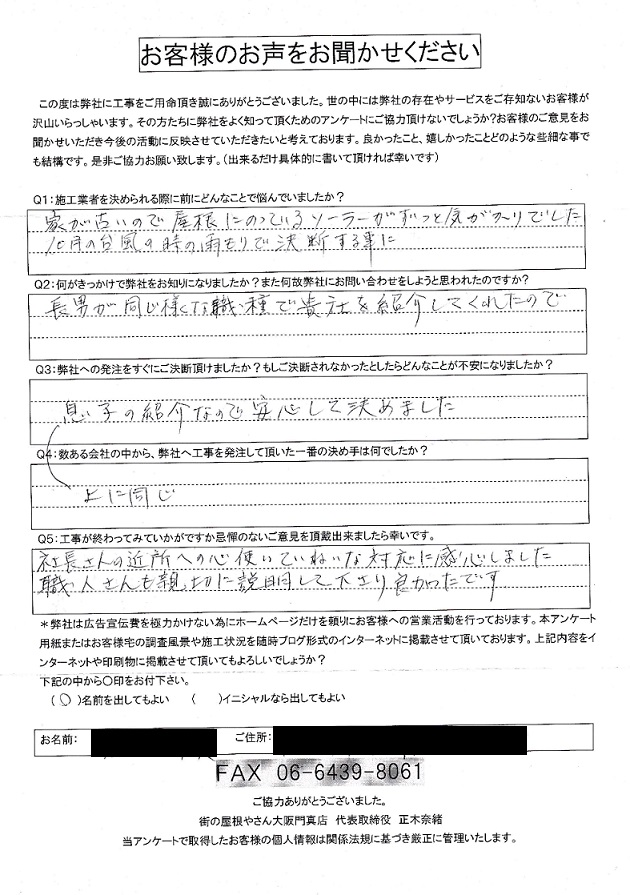 お客様のお声をお聞かせください
この度は弊社に工事をご用命頂き誠にありがとうございました。世の中には弊社の存在やサービスをご存知ないお客様が
沢山いらっしゃいます。その方たちに弊社をよく知って頂くためのアンケートにご協力頂けないでしょうか?お客様のご意見をお
聞かせいただき今後の活動に反映させていただきたいと考えております。良かったこと、嬉しかったことどのような些細な事で
も結構です。是非ご協力お願い致します。(出来るだけ具体的に書いて頂ければ幸いです)
Q1:施工業者を決められる際に前にどんなことで悩んでいましたか?
家が古いので屋根にのっているソーラーがずっと気がかりでした
10月の台風の時の雨もりで決断する事に
Q2:何がきっかけで弊社をお知りになりましたか?また何故弊社にお問い合わせをしようと思われたのですか?
長男が同じ様な職種で貴社を紹介してくれたので
Q3:弊社への発注をすぐにご決断頂けましたか?もしご決断されなかったとしたらどんなことが不安になりましたか?
息子の紹介なので安心して決めました
Q4:数ある会社の中から、弊社へ工事を発注して頂いた一番の決め手は何でしたか?
上に同じ
Q5:工事が終わってみていかがですか忌憚のないご意見を頂戴出来ましたら幸いです。
社長さんの近所への心使いていねいな対応に感心しました
職人さんも親切に説明して下さり良かったです
*弊社は広告宣伝費を極力かけない為にホームページだけを頼りにお客様への営業活動を行っております。本アンケート
用紙またはお客様宅の調査風景や施工状況を随時ブログ形式のインターネットに掲載させて頂いております。上記内容をイ
ンターネットや印刷物に掲載させて頂いてもよろしいでしょうか?
下記の中から〇印をお付下さい。
(〇)名前を出してもよい ( )イニシャルなら出してもよい
お名前: ご住所:
FAX 06-6439-8061
ご協力ありがとうございました。
街の屋根やさん大阪門真店 代表取締役 正木奈緒
当アンケートで取得したお客様の個人情報は関係法規に基づき厳正に管理いたします。